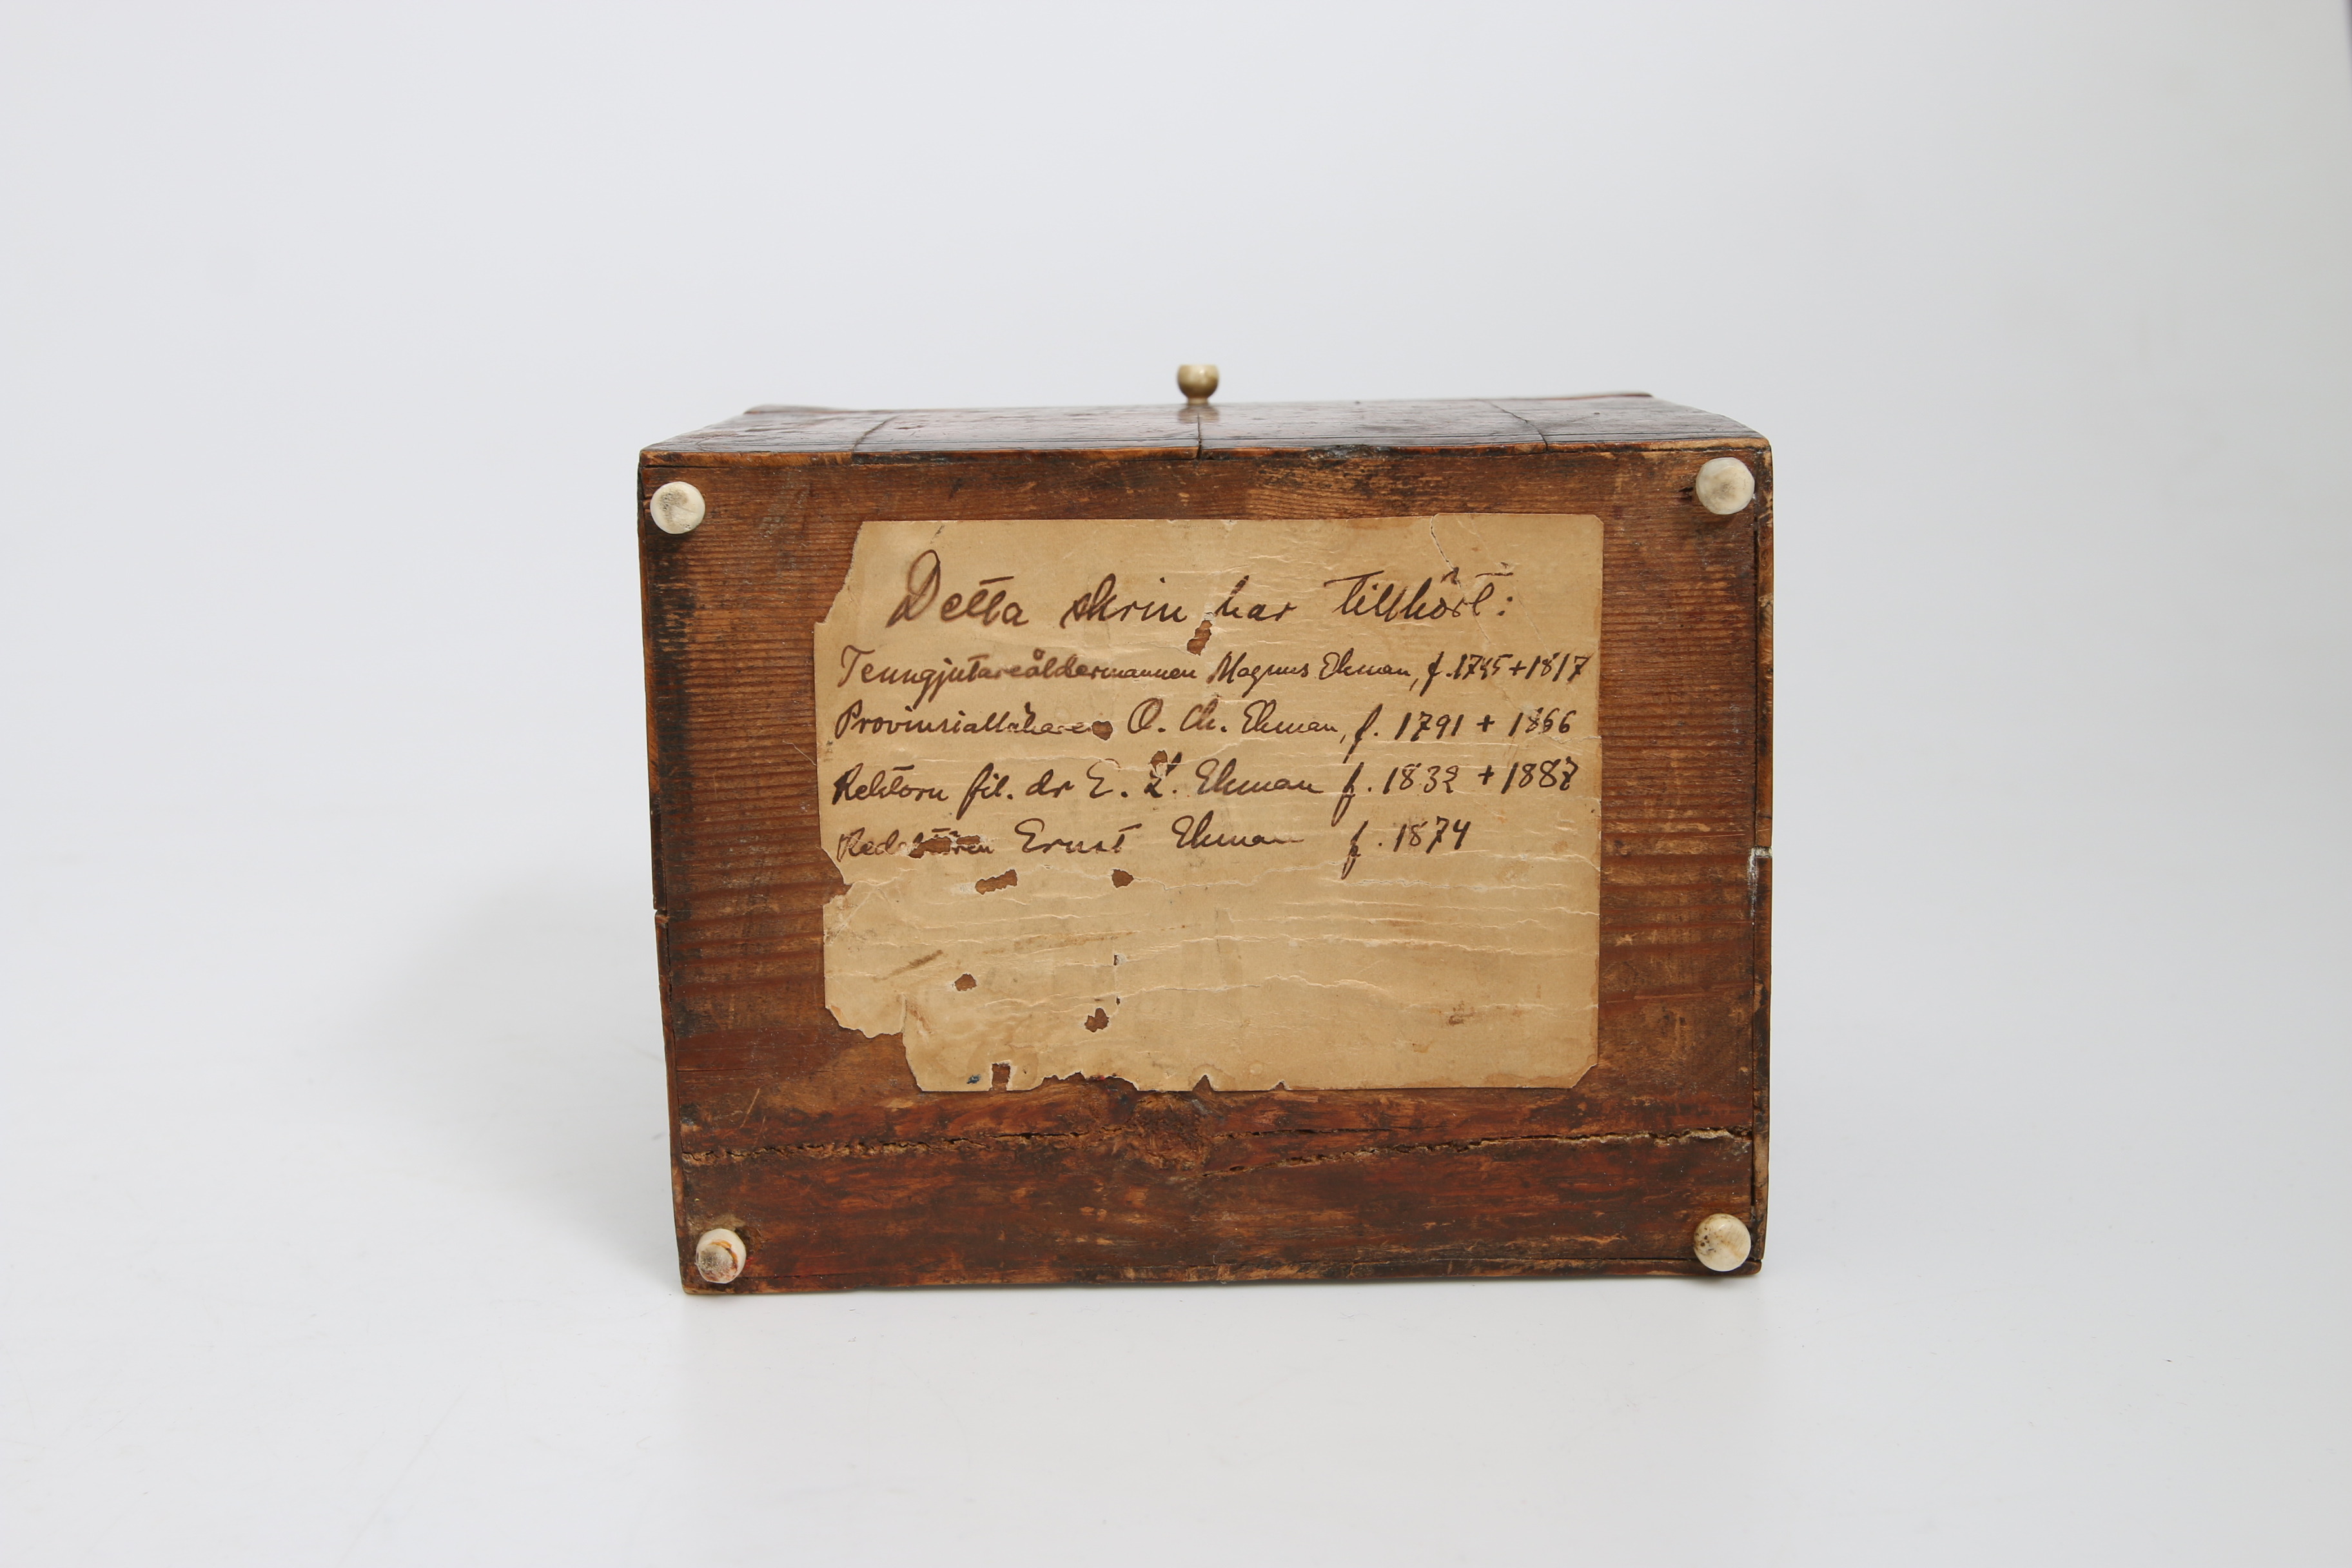 Detta skrin har tillhört:
Tenngjutareåldermannen Magnus Ekman, f. 1745 + 1817
Provinsialläkaren O. Ch. Ekman, f. 1791 + 1866
Rektorn fil. dr E. L. Ekman f. 1832 + 1887
Ernst Ekman f. 1874